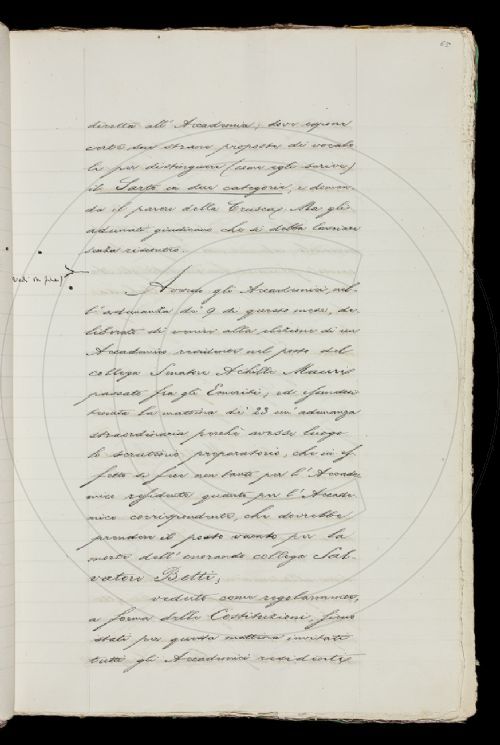 65
diretta all' Accademia; dove espone
certe sue strane proposte di vocabo
li per distinguere (come egli scrive)
il Sarto in due categorie, e doman-
da il parere della Crusca. Ma gli
adunati giudicano che si debba lasciare
senza riscontro.
(vedi in fine)
Avendo gli Accademici, nel-
l' adunanza de' 9 di questo mese, de-
liberato di venire alla elezione di un
Accademico residente nel posto del
collega Senatore Achille Mauri
passato fra gli Emeriti; ed essendosi
tenuta la mattina de' 23 un' adunanza
straordinaria perchè avesse luogo
lo scrutinio preparatorio, che in ef-
fetto si fece non tanto per l' Accade-
mico residente quanto per l' Accade-
mico corrispondente, che dovrebbe
prendere il posto vacato per la
morte dell' onorando collega Sal-
vatore Betti;
veduto come regolarmente,
a forma delle Costituzioni, siano
stati per questa mattina invitati
tutti gli Accademici residenti,